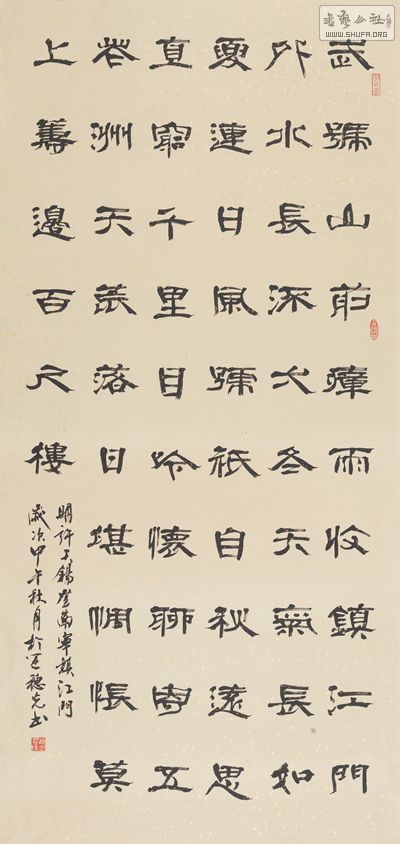 武號山前瘴雨收鎮江門
外水長流冬天氣長如
夏連日風號祇自秋遠思
直窮千里目吟懷聊五
花洲天落日堪惆悵莫
上籌邊百尺樓
明許子錫登南寧鎮江門
歲次甲午秋月於光書
書藝公社
WWW.SHUFA.ORG